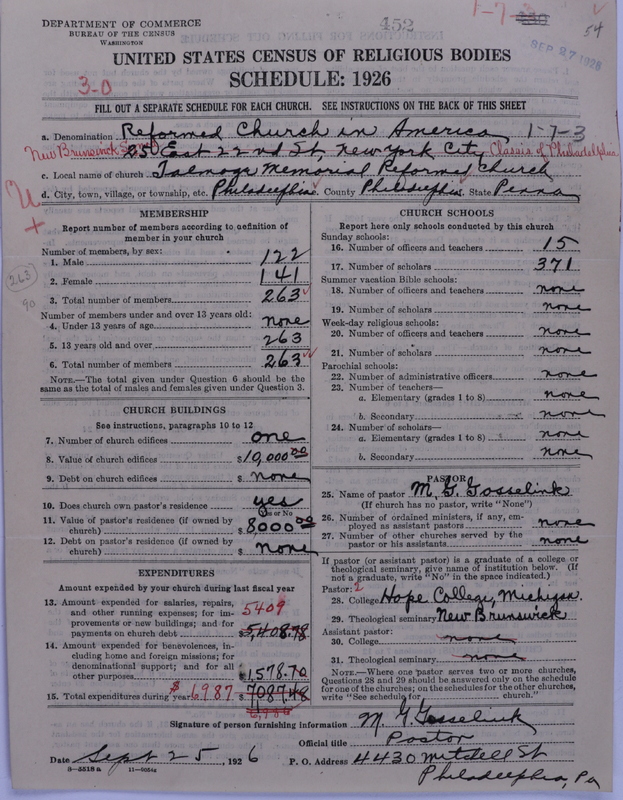 DEPARTMENT OF COMMERCE
BUREAU OF THE CENSUS
WASHINGTON
452
1-7-3
54
SEP 27 1926
UNITED STATES CENSUS OF RELIGIOUS BODIES
SCHEDULE: 1926
3-0
FILL OUT A SEPARATE SCHEDULE FOR EACH CHURCH. SEE INSTRUCTIONS ON THE BACK OF THIS SHEET
a. Denomination Reformed Church in America 1-7-3
New Brunswick 25 East 22nd St, New York City Classis of Philadelphia
c. Local name of church Talmage Memorial Reformed Church
d. City, town, village, or township, etc. Philadelphia County Philadelphia State Penna
MEMBERSHIP
Report number of members according to definition of member in your church
Number of members, by sex:
1. Male 122
2. Female 141
3. Total number of members 263
263
90
Number of members under and over 13 years old:
4. Under 13 years of age none
5. 13 years old and over 263
6. Total number of members 263
NOTE.—The total given under Question 6 should be the
same as the total of males and females given under Question 3.
CHURCH BUILDINGS
See instructions, paragraphs 10 to 12
7. Number of church edifices one
8. Value of church edifices $10,000 00
9. Debt on church edifices $ none
10. Does church own pastor's residence yes
Yes or No
11. Value of pastor's residence (if owned by
church) $ 8000 00
12. Debt on pastor's residence (if owned by
church) $ none
EXPENDITURES
Amount expended by your church during last fiscal year
13. Amount expended for salaries, repairs,
and other running expenses; for im-
provements or new buildings; and for
payments on church debt $5,408.78
5409
14. Amount expended for benevolences, in-
cluding home and foreign missions; for
denominational support; and for all
other purposes 1578.70
15. Total expenditures during year $6987 $ 7087.48
CHURCH SCHOOLS
Report here only schools conducted by this church
Sunday schools:
16. Number of officers and teachers 15
17. Number of scholars 371
Summer vacation Bible schools:
18. Number of officers and teachers none
19. Number of scholars none
Week-day religious schools:
20. Number of officers and teachers none
21. Number of scholars none
Parochial schools:
22. Number of administrative officers none
23. Number of teachers—
a. Elementary (grades 1 to 8) none
b. Secondary none
24. Number of scholars—
a. Elementary (grades 1 to 8) none
b. Secondary none
PASTOR
25. Name of pastor M. G. Gosselink
(If church has no pastor, write "None")
26. Number of ordained ministers, if any, em-
ployed as assistant pastors none
27. Number of other churches served by the
pastor or his assistants none
If pastor (or assistant pastor) is a graduate of a college or
theological seminary, give name of institution below. (If
not a graduate, write "No" in the space indicated.)
Pastor: 2
28. College Hope College, Michigan.
29. Theological seminary New Brunswick
Assistant pastor:
30. College none
31. Theological seminary none
NOTE.—Where one pastor serves two or more churches,
Questions 28 and 29 should be answered only on the schedule
for one of the churches; on the schedules for the other churches,
write "See schedule for church."
Signature of person furnishing information M G Gosselink
Official title Pastor
Date Sept 25, 1926 P. O. Address 4430 Mitchell St
8-5518 a Philadelphia, Pa